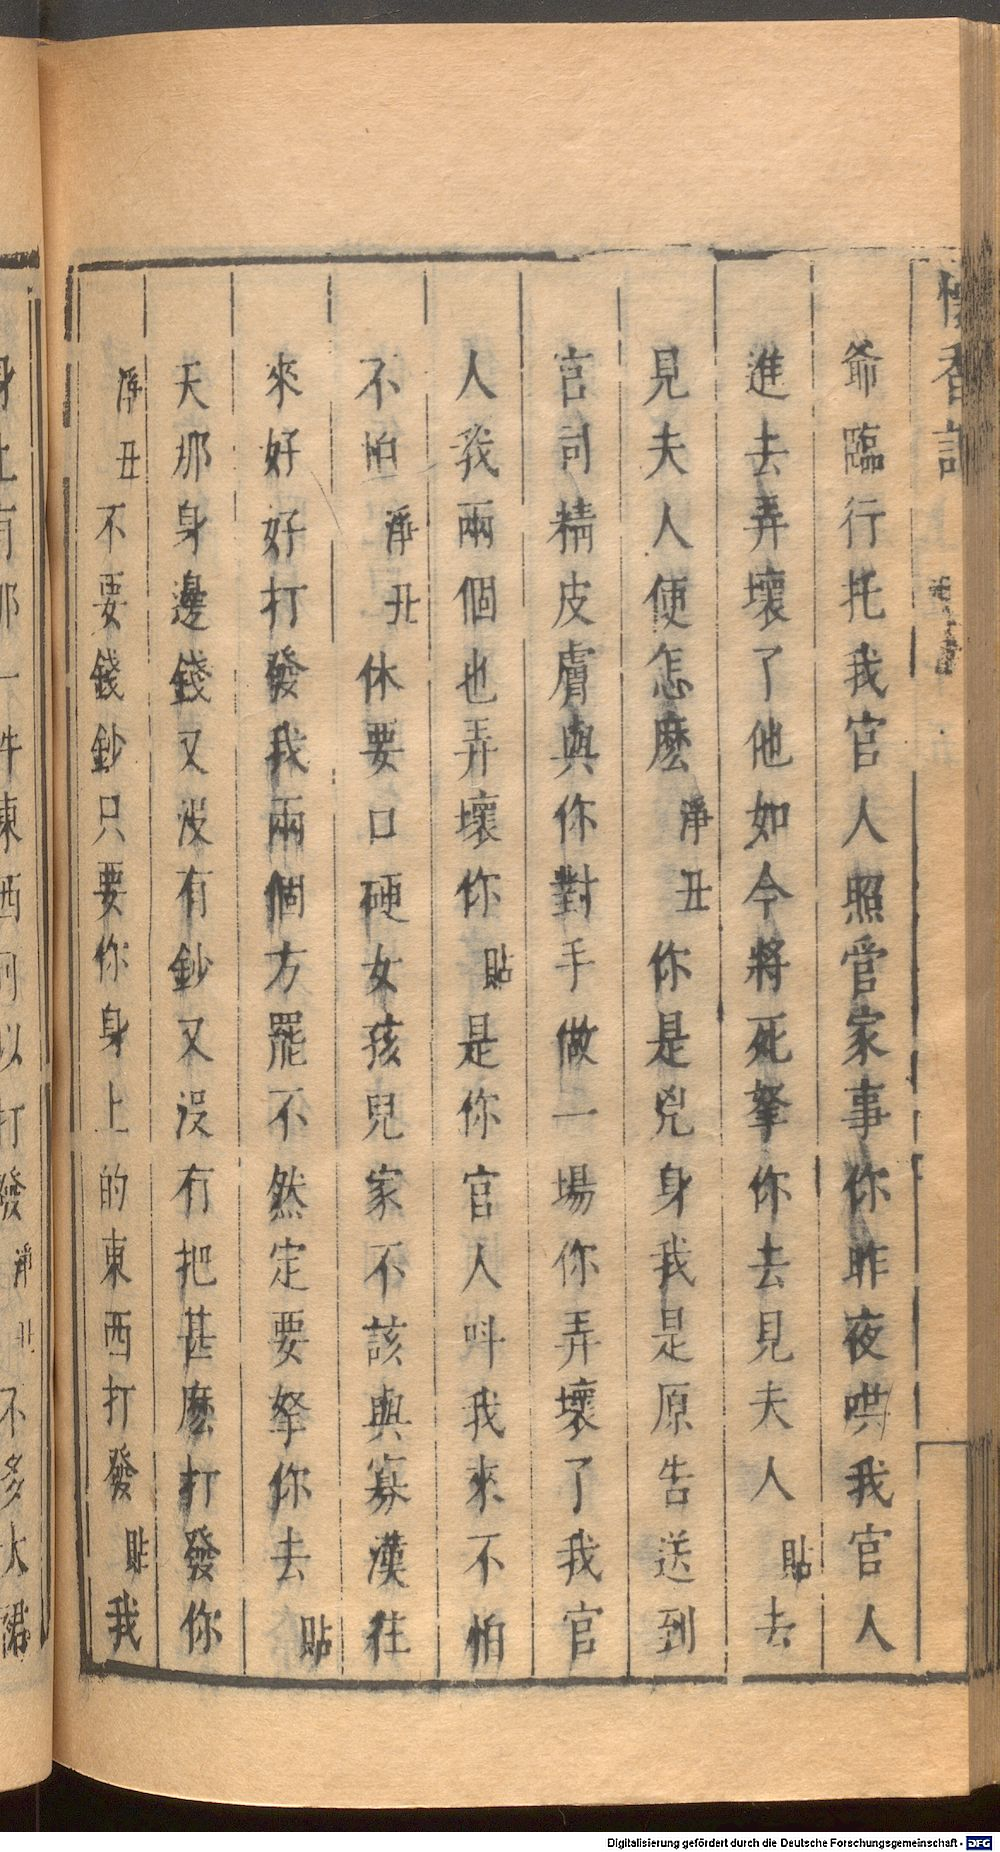 懷香記
爺臨行托我官人照管家事你昨夜哄我官人
進去弄壞了他如今將死拏你去見夫人貼去
見夫人便怎麼淨丑你是兇身我是原告送到
官司精皮膚與你對手做一場你弄壞了我官
人我兩個也弄壞你貼是你官人呌我來不怕
不怕淨丑休要口硬女孩兒家不該與寡漢往
來好好打發我兩個方罷不然定要拏你去貼
天那身邊錢又沒有鈔又沒有把甚麼打發你
淨丑不要錢鈔只要你身上的東西打發貼我
身上有那一件東西可以打發淨丑不多大裙
Digitalisierung gefördert durch die Deutsche Forschungsgemeinschaft - DFG